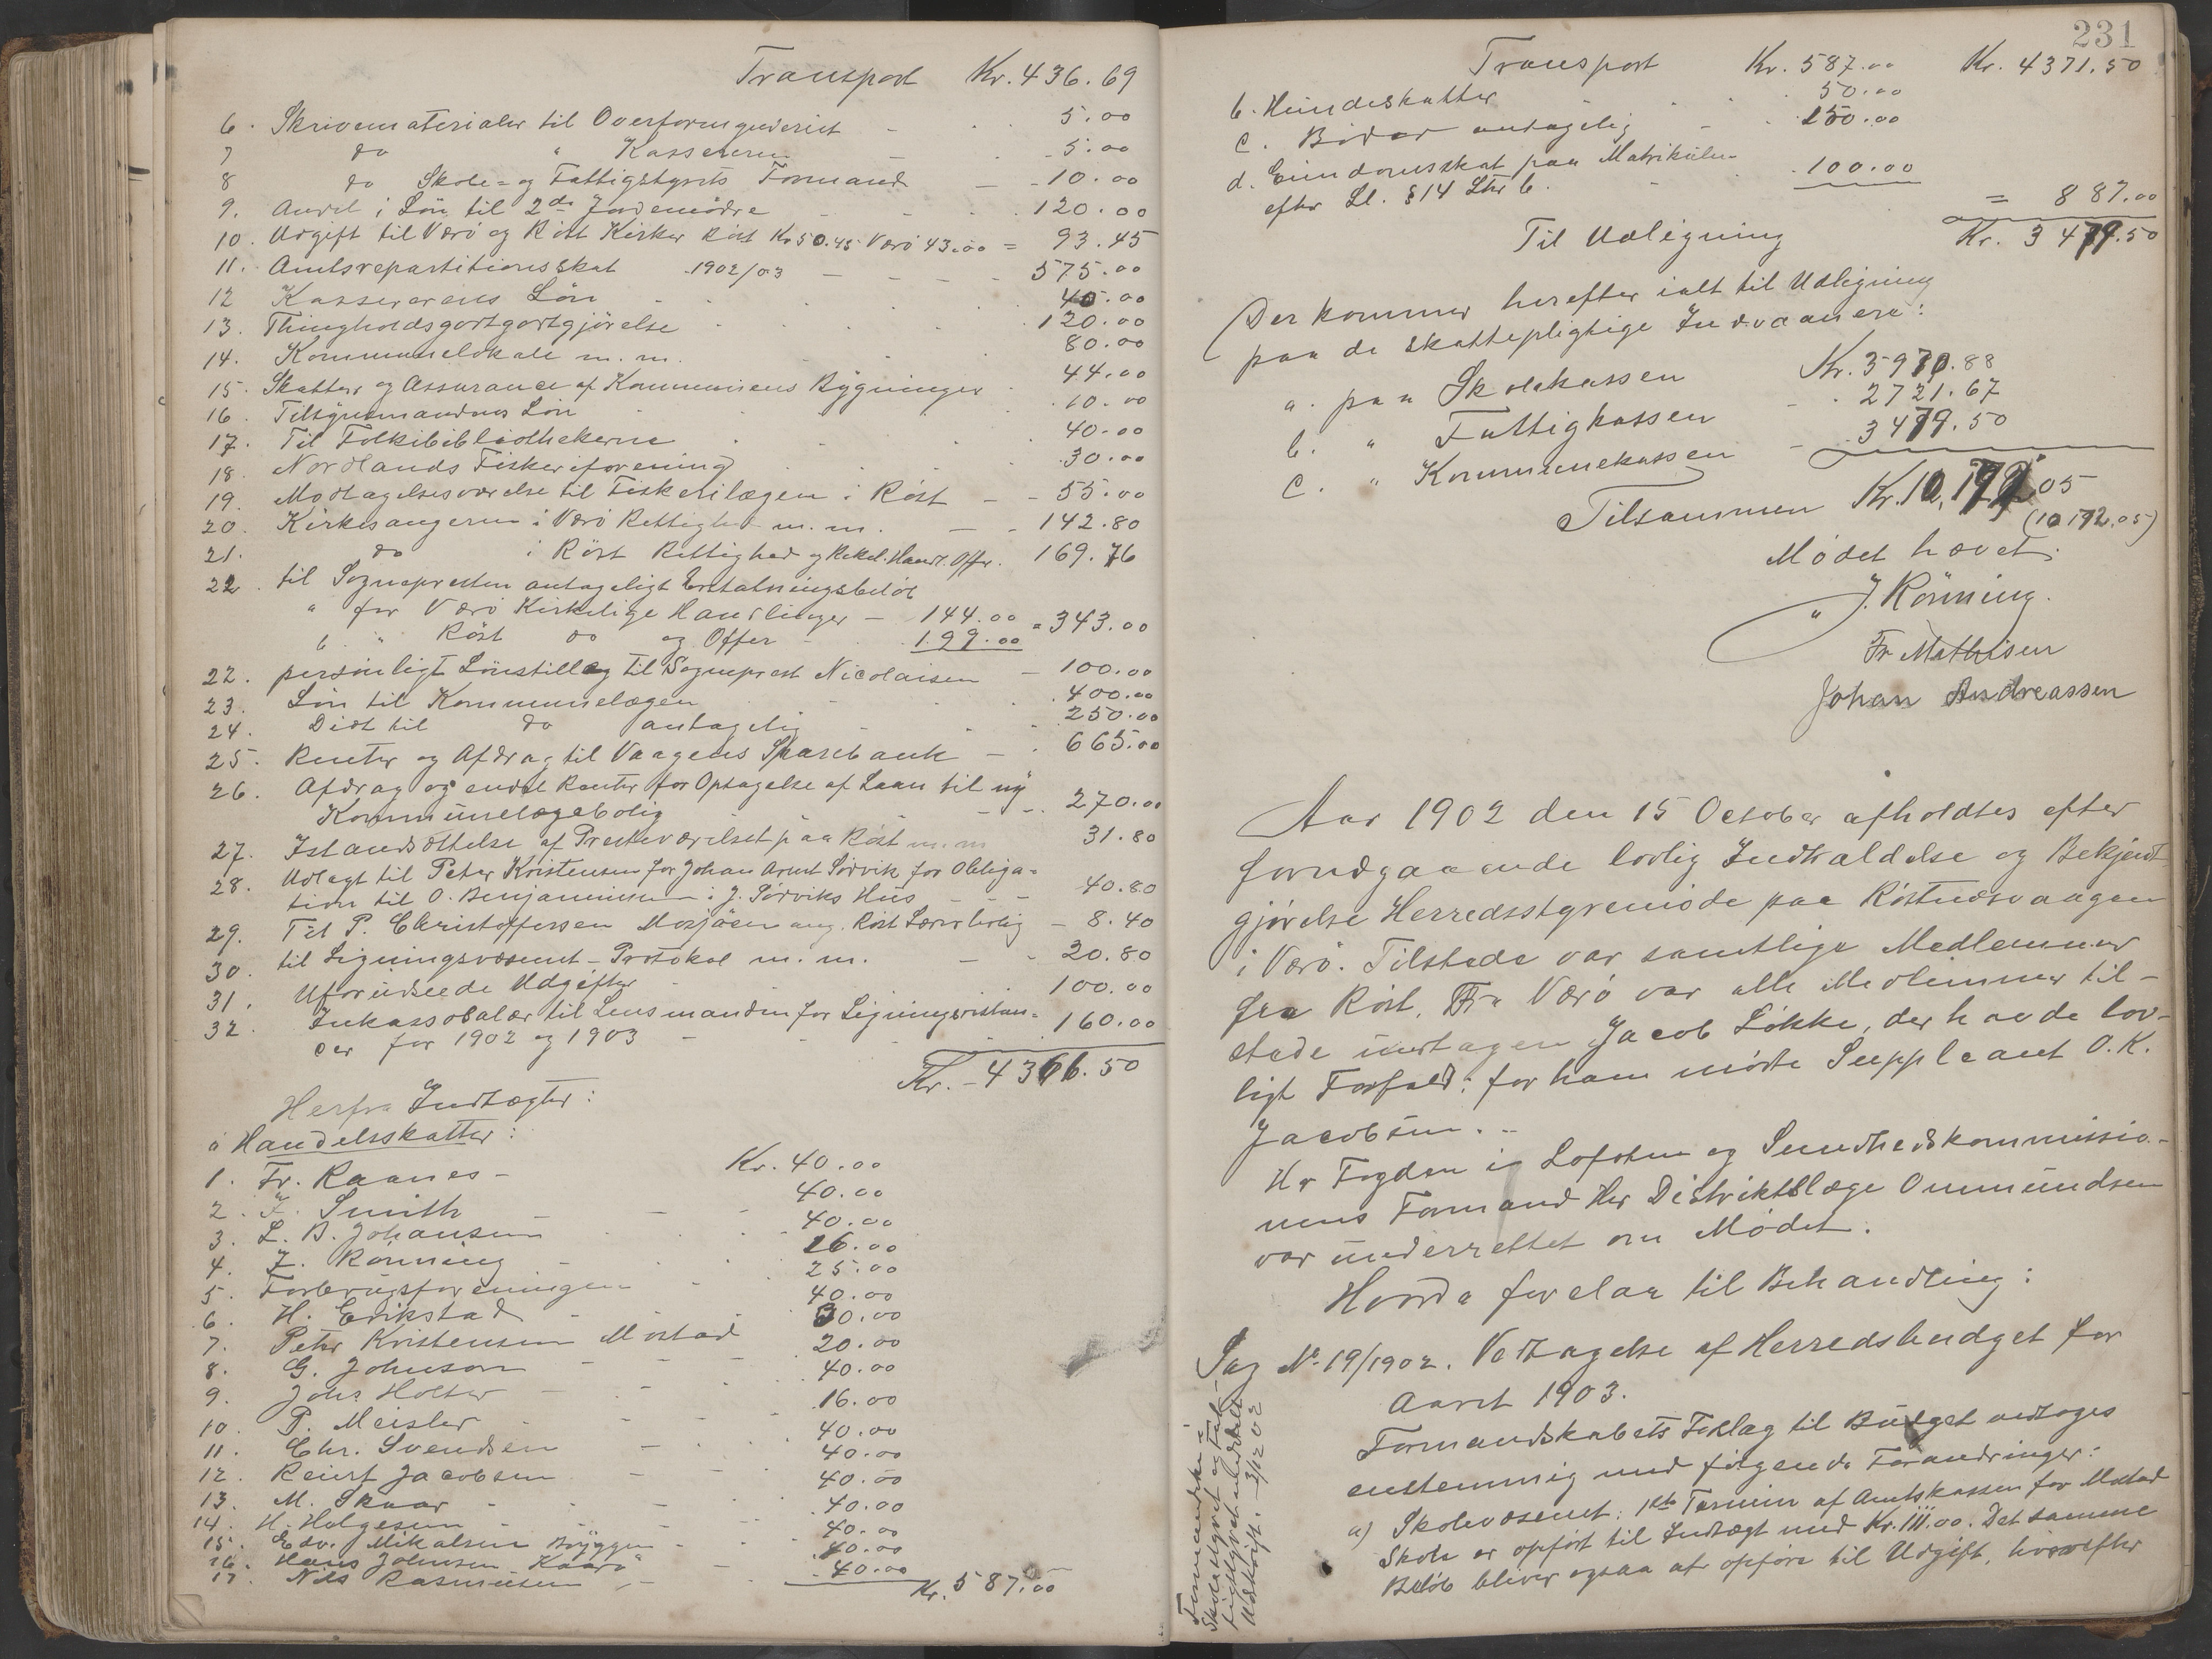 Transport Kr. 436.69
6. Skrivematerialer til Overformynderiet - 5.00
7 do " Kassereren - 5.00
8 do Skole- og Fattigstyrets Formand - 10.00
9. Andel i Løn til 2de Jordemødre - 120.00
10. Udgift til Værø og Røst Kirker Røst Kr 50.45 Værø 43.00 = 93.45
11. Amtsrepartitionsskat 1902/03 - 575.00
12 Kassererens Løn 40.00
13. Thingholdsgodtgjørelse 120.00
14. Kommunelokale m. m. 80.00
15. Skatter og Assurance af Kommunens Bygninger 44.00
16. Tilsynsmandens Løn 10.00
17. Til Folkebibliothekerne 40.00
18. Nordlands Fiskeriforening 30.00
19. Modtagelsesværelse til Fiskerilægen i Røst - 55.00
20. Kirkesangeren i Værø Rettighed m. m. - 142.80
21. do i Røst Rettighed og Kirkel. Handl. Offr. 169.76
22. til Sognepresten antageligt Erstatningsbeløb
a for Værø Kirkelige Handlinger - 144.00
b " Røst do og Offer - 199.00 = 343.00
22. personligt Lønstillæg til Sogneprest Nicolaisen - 100.00
23. Løn til Kommunelægen 400.00
24. Diæt til do antagelig 250.00
25. Renter og Afdrag til Vaagens Sparebank - 665.00
26. Afdrag og endel Renter for Optagelse af Laan til ny
Kommunelægebolig - 270.00
27. Istandsættelse af Presteværelset paa Røst m. m 31.80
28. Udlagt til Peter Kristensen for Johan Arnt Sørvik for Obliga=
tion til O. Benjaminsen i J. Sørviks Hus - 40.80
29. Til P. Christoffersen Mosjøen ang. Røst Lærerbolig - 8.40
30. til Ligningsvæsenet - Protokol m. m. - 20.80
31. Uforudseede Udgifter 100.00
32. Inkassosalær til Lensmanden for Ligningsrestan=
cer for 1902 og 1903 - 160.00
Kr. - 4366.50
Herfra Indtægter:
a Handelsskatter:
1. Fr. Raanes - Kr. 40.00
2. F. Smith - 40.00
3. L. B. Johansen 40.00
4. J. Rønning - 26.00
5. Forbrugsforeningen 25.00
6. H. Erikstad - 40.00
7. Peter Kristensen Mostad 30.00
8. G. Johnson - 20.00
9. Johs Holter - 40.00
10. P. Meisler - 16.00
11. Chr. Svendsen - 40.00
12. Reiert Jacobsen - 40.00
13. M. Skaar - 40.00
14. H. Helgesen - 40.00
15. Edv. Mikalsen Bryggen - 40.00
16. Hans Johnsen Kaarø 40.00
17. Nils Rasmusen - 40.00
Kr. 587.00
231
Transport Kr. 587.00 Kr. 4371.50
b. Hundeskatter 50.00
c. Bøder antagelig - 150.00
d. Eiendomsskat paa Matrikulen
efter Ll. §14 Ltr b. - 100.00
= 887.00
Til Udligning Kr. 3479.50
Der kommer herefter ialt til Udligning
paa de skattepligtige Indvaanere:
a. paa Skolekassen Kr. 3970.88
b. " Fattigkassen - 2721.67
c. " Kommunekassen - 3479.50
Tilsammen Kr. 10,172.05
(10172.05)
Mødet hævet.
J. Rønning.
Fr Mathisen
Johan Andreassen
Aar 1902 den 15 October afholdtes efter
forudgaaende lovlig Indkaldelse og Bekjendt
gjørelse Herredsstyremøde paa Røstnæsvaagen
i Værø. Tilstede var samtlige Medlemmer
fra Røst. Fra Værø var alle Medlemmer til-
stede undtagen Jacob Løkke, der havde lov-
ligt Forfald; for ham mødte Suppleant O. K.
Jacobsen. -
Hr Fogden i Lofoten og Sundhedskommissio-
nens Formand Hr Distriktslæge Ommundsen
var underrettet om Mødet.
Hvorda forelaa til Behandling:
Sag No 19/1902. Vedtagelse af Herredsbudget for
Aaret 1903.
Formandskabets Foklag til Budget vedtoges
enstemmig med følgende Forandringer:
a) Skolevæsenet: 1ste Termin af Amtskassen for Mostad
Skole er opført til Indtægt med Kr. 111.00. Det samme
Beløb bliver ogsaa at opføre til Udgift, hvorefter
Skolestyret og Fat-
tigstyret meddelt
Udskrift. 3/12 02